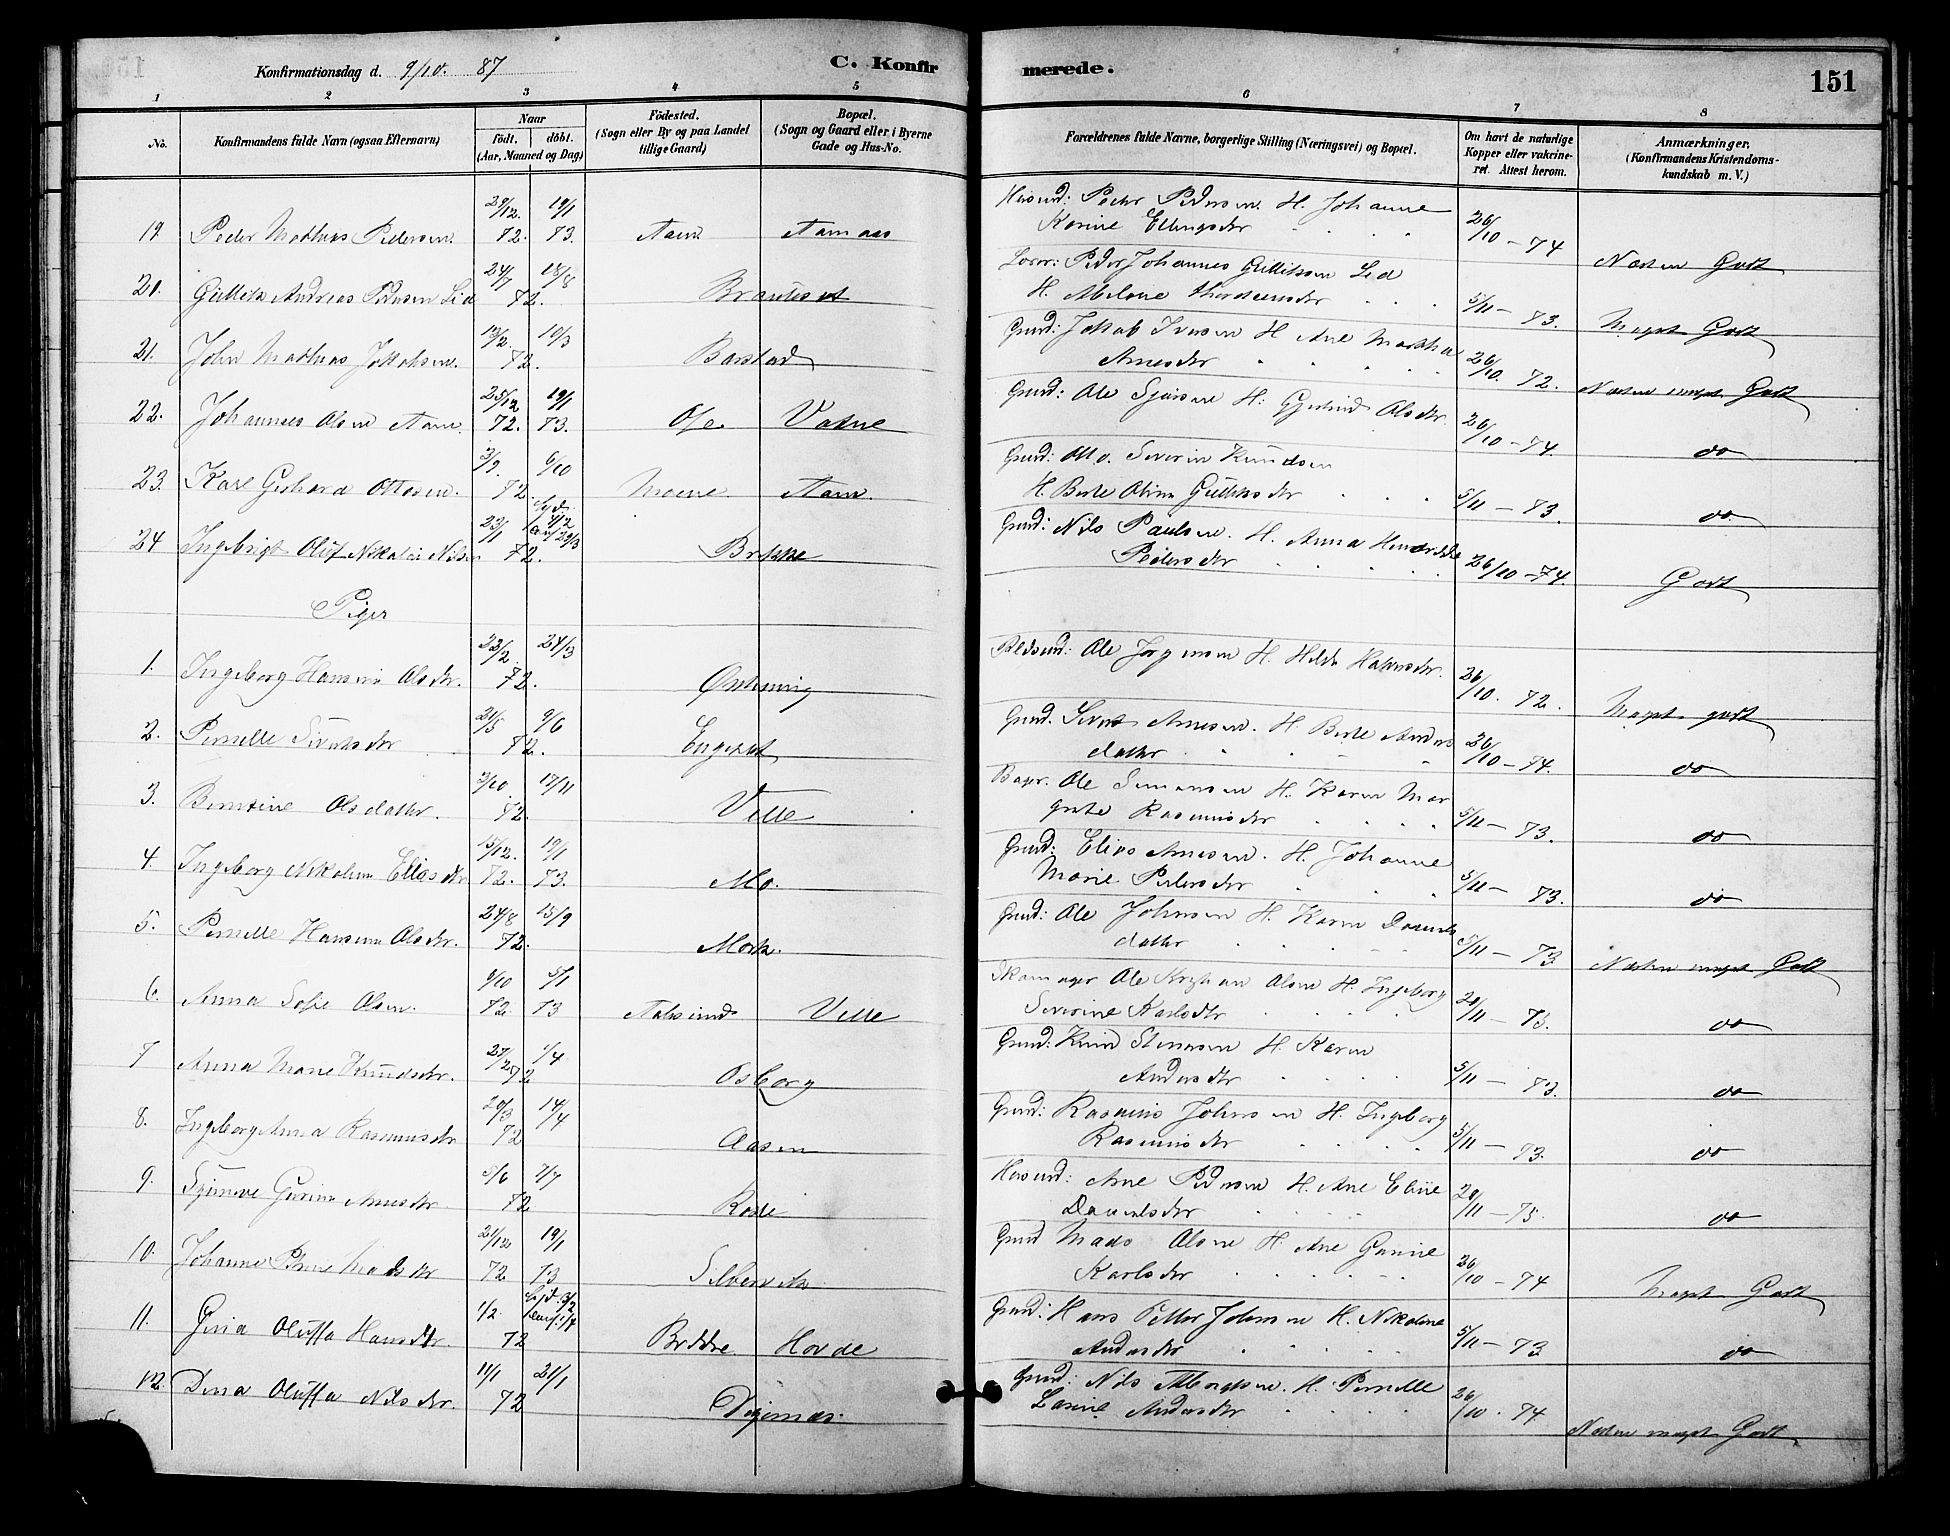 Konfirmationsdag d. 9/10. 87
C. Konfirmerede.
151
1 2 3 4 5 6 7 8
No.
Konfirmandens fulde Navn (ogsaa Efternavn)
Naar
födt. döbt.
(Aar, Maaned og Dag)
Födested.
(Sogn eller By og paa Landet
tillige Gaard)
Bopæl.
(Sogn og Gaard eller i Byerne
Gade og Hus-No.
Forældrenes fulde Navne, borgerlige Stilling (Næringsvei) og Bopæl.
Om havt de naturlige
Kopper eller vakcine-
ret. Attest herom.
Anmærkninger.
(Konfirmandens Kristendoms-
kundskab m. V.)
19. Peder Mathias Pedersen. 29/12. 72. 19/1 73. Aam Aamaas Husmd: Peder Pedersen H. Johanne
Karine Ellingsdtr 26/10 - 74 Næsten Godt
21. Gullik Andreas Pedersen Lid 24/7 18/8 72. Brauteset Peder Johannes Gulliksen Lid
H. 5/11 - 73. Meget Godt
21. John Mathias Jakobsen. 13/2. 10/3 72. Barstad Grmd: Jakob Iversen H. Ane Martha
Arnesdtr 26/10. 72. Næsten meget Godt
22. Johannes Olsen Aam. 25/12 72. 19/1 73. Ose Vatne Grmd: Ole H: Gjertrud Olsdtr. 26/10 - 74. do
23. Karl Gerhard Ottosen. 3/9. 6/10 72. Moene. Aam. Grmd: Severin Knudsen
H. Berte Oline Gulliksdtr 5/11 - 73. do
24 Ingebrigt Oluf Nikolai Nilsen 23/1 72. Grmd: Nils Paulsen. H. Anna
Pedersdtr 26/10 - 74. Godt
Piger
1. Ingeborg Hansine Olsdtr. 23/2. 24/3 72. Ole Jørgensen H. 26/10. 72. Meget godt
2. Pernille Sivertsdtr 21/5 9/6 72. Engeset Grmd. Sivert Arnesen. H. Berte Anders
datter 26/10 - 74. do
3. Berntine Olsdatter. 3/10. 17/11 72. Velle Ole Simonsen H. Karen Mar
grete Rasmusdtr 5/11 - 73. do
4. Ingeborg Nikoline Eliasdtr 15/12. 72. 19/1 73. Mo. Grmd: Elias Arnesen. H. Johanne
Marie Pedersdtr 5/11 - 73. do
5. Pernille Hansine Olsdtr. 24/8 15/9 72. Mork. Grmd: Ole Johnsen H. Karen Daniels
datter 5/11 - 73 Næsten meget Godt
6. Anna Sofie Olsen. 9/10 72 5/1 73 Aalesund Velle Skomager Ole Kristian Olsen H. Ingeborg
Severine Karlsdtr 20/11 - 75. do
7 Anna Marie Knudsdtr. 27/2 1/4 72 Osborg Grmd: Knud Steinesen H. Karen
Andersdtr 5/11 - 73. do
8. Ingeborg Anna Rasmusdtr 20/3 14/4 72 Aasen Grmd: Rasmus Johnsen H. Ingeborg
Rasmusdtr 5/11 - 73. do
9. Arnesdtr 5/6 7/7 72 Husmd: Arne Pedersen H. Ane Eline
Danielsdtr 20/11 - 75. do
10. Johanne Madsdtr 21/12 72 19/1 73 Grmd Mads Olsen H. Ane Gurine
Karlsdtr 26/10 - 74 Meget Godt
11. Gina Oluffa Hansdtr. 1/2. 72 Hovde Grmd: Hans Petter Johnsen H. Nikoline
Andersdtr 5/11 - 73 do
12. Dina Oluffa Nilsdtr 11/1 21/1 72 Digernæs. Grmd: Nils H. Pernille
Lasine Andersdtr 26/10. 74 Næsten meget Godt